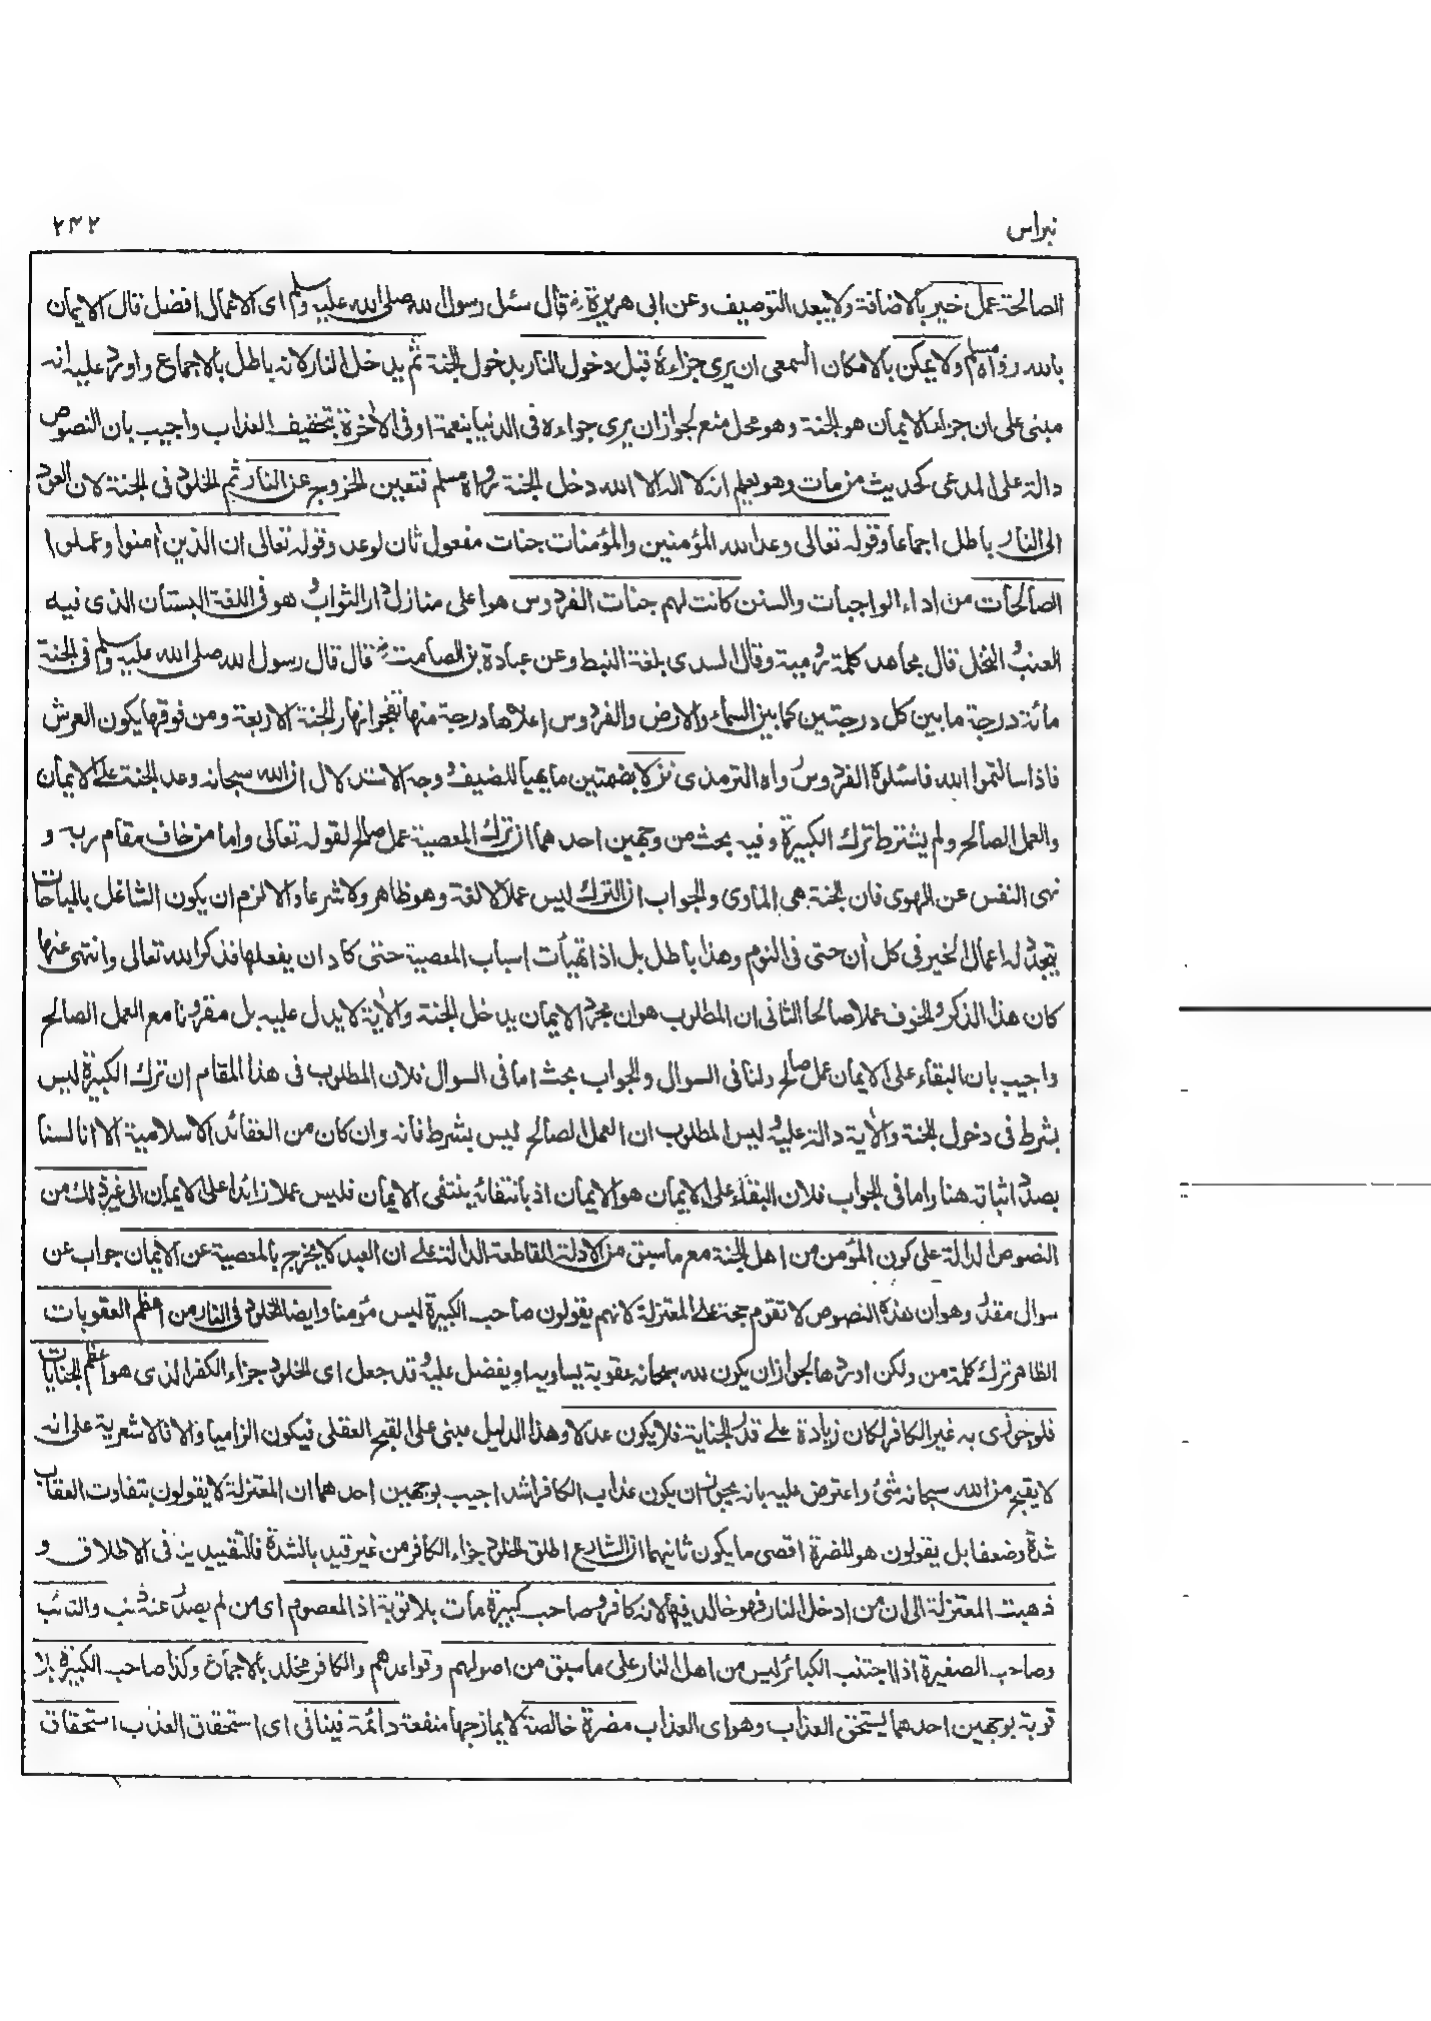 نبراس ٢٣٢
الصالحة عمل خير بالاضافة ولا يبعد التوصيف وعن ابى هريرة رض قال سئل رسول الله صلى الله عليه وسلم اى الاعمال افضل قال الايمان
بالله رواه مسلم ولا يمكن بالامكان السمعى ان يرى جزاءه قبل دخول النار بدخول الجنة ثم يدخل النار لانه باطل بالاجماع واورد عليه انه
مبنى على ان جزاء الايمان هو الجنة وهو محل منع لجواز ان يرى جزاءه فى الدنيا بنعمة او فى الاخرة بتخفيف العذاب واجيب بان النصوص
دالة على المدعى كحديث من مات وهو يعلم انه لا اله الا الله دخل الجنة رواه مسلم فتعين الخروج عن النار ثم الخلود فى الجنة لان العود
الى النار باطل اجماعا وقوله تعالى وعد الله المؤمنين والمؤمنات جنات مفعول ثان لوعد وقوله تعالى ان الذين اٰمنوا وعملوا
الصالحات من اداء الواجبات والسنن كانت لهم جنات الفردوس هو اعلى منازل دار الثواب وهو فى اللغة البستان الذى فيه
العنب والنخل قال مجاهد كلمة رومية وقال السدى بلغة النبط وعن عبادة بن الصامت رض قال قال رسول الله صلى الله عليه وسلم فى الجنة
مائة درجة ما بين كل درجتين كما بين السماء والارض والفردوس اعلاها درجة منها تفجر انهار الجنة الاربعة ومن فوقها يكون العرش
فاذا سالتموا الله فاسئلوه الفردوس رواه الترمذى نزلا بضمتين ما يهيأ للضيف وجه الاستدلال ان الله سبحانه وعد الجنة على الايمان
والعمل الصالح ولم يشترط ترك الكبيرة وفيه بحث من وجهين احدهما ان ترك المعصية عمل صالح لقوله تعالى واما من خاف مقام ربه و
نهى النفس عن الهوى فان الجنة هى الماوى والجواب ان الترك ليس عملا لا لغة وهو ظاهر ولا شرعا والا لزم ان يكون الشاغل بالمباحات
يتجدد له اعمال الخير فى كل اٰن حتى فى النوم وهذا باطل بل اذا تهيأت اسباب المعصية حتى كاد ان يفعلها فذكر الله تعالى وانتهى عنها
كان هذا الذكر والخوف عملا صالحا الثانى ان المطلوب هو ان مجرد الايمان يدخل الجنة والاٰية لا يدل عليه بل مقرونا مع العمل الصالح
واجيب بان البقاء على الايمان عمل صالح ولنا فى السوال والجواب بحث اما فى السوال فلان المطلوب فى هذا المقام ان ترك الكبيرة ليس
بشرط فى دخول الجنة والاٰية دالة عليه وليس المطلوب ان العمل الصالح ليس بشرط فانه وان كان من العقائد الاسلامية الا انا لسنا
بصدد اثباته هنا واما فى الجواب فلان البقاء على الايمان هو الايمان اذ بانتفائه ينتفى الايمان فليس عملا زائدا على الايمان الى غير ذلك من
النصوص الدالة على كون المؤمن من اهل الجنة مع ما سبق من الادلة القاطعة الدالة على ان العبد لا يخرج بالمعصية عن الايمان جواب عن
سوال مقدر وهو ان هذه النصوص لا تقوم حجة على المعتزلة لانهم يقولون صاحب الكبيرة ليس مؤمنا وايضا الخلود فى النار من اعظم العقوبات
الظاهر ترك كلمة من ولكن اوردها لجواز ان يكون لله سبحانه عقوبة يساويه او يفضل عليه وقد جعل اى الخلود جزاء الكفر الذى هو اعظم الجنايات
فلو جوزى به غير الكافر لكان زيادة على قدر الجناية فلا يكون عدلا وهذا الدليل مبنى على القبح العقلى فيكون الزاميا والا فالاشعرية على انه
لا يقبح من الله سبحانه شئ واعترض عليه بانه يجوز ان يكون عذاب الكافر اشد اجيب بوجهين احدهما ان المعتزلة لا يقولون بتفاوت العقاب
شدة وضعفا بل يقولون هو المضرة اقصى ما يكون ثانيهما ان الشارع اطلق الخلود جزاء الكافر من غير قيد بالشدة فالتقييد ينفى الاطلاق و
ذهبت المعتزلة الى ان من ادخل النار فهو خالد فيها لانه كافر او صاحب كبيرة مات بلا توبة اذ المعصوم اى من لم يصدر عنه ذنب والتائب
وصاحب الصغيرة اذا اجتنب الكبائر ليس من اهل النار على ما سبق من اصولهم وقواعدهم والكافر مخلد بالاجماع وكذا صاحب الكبيرة بلا
توبة بوجهين احدهما يستحق العذاب وهو اى العذاب مضرة خالصة لا يمازجها منفعة دائمة فينافى اى استحقاق العذاب استحقاق